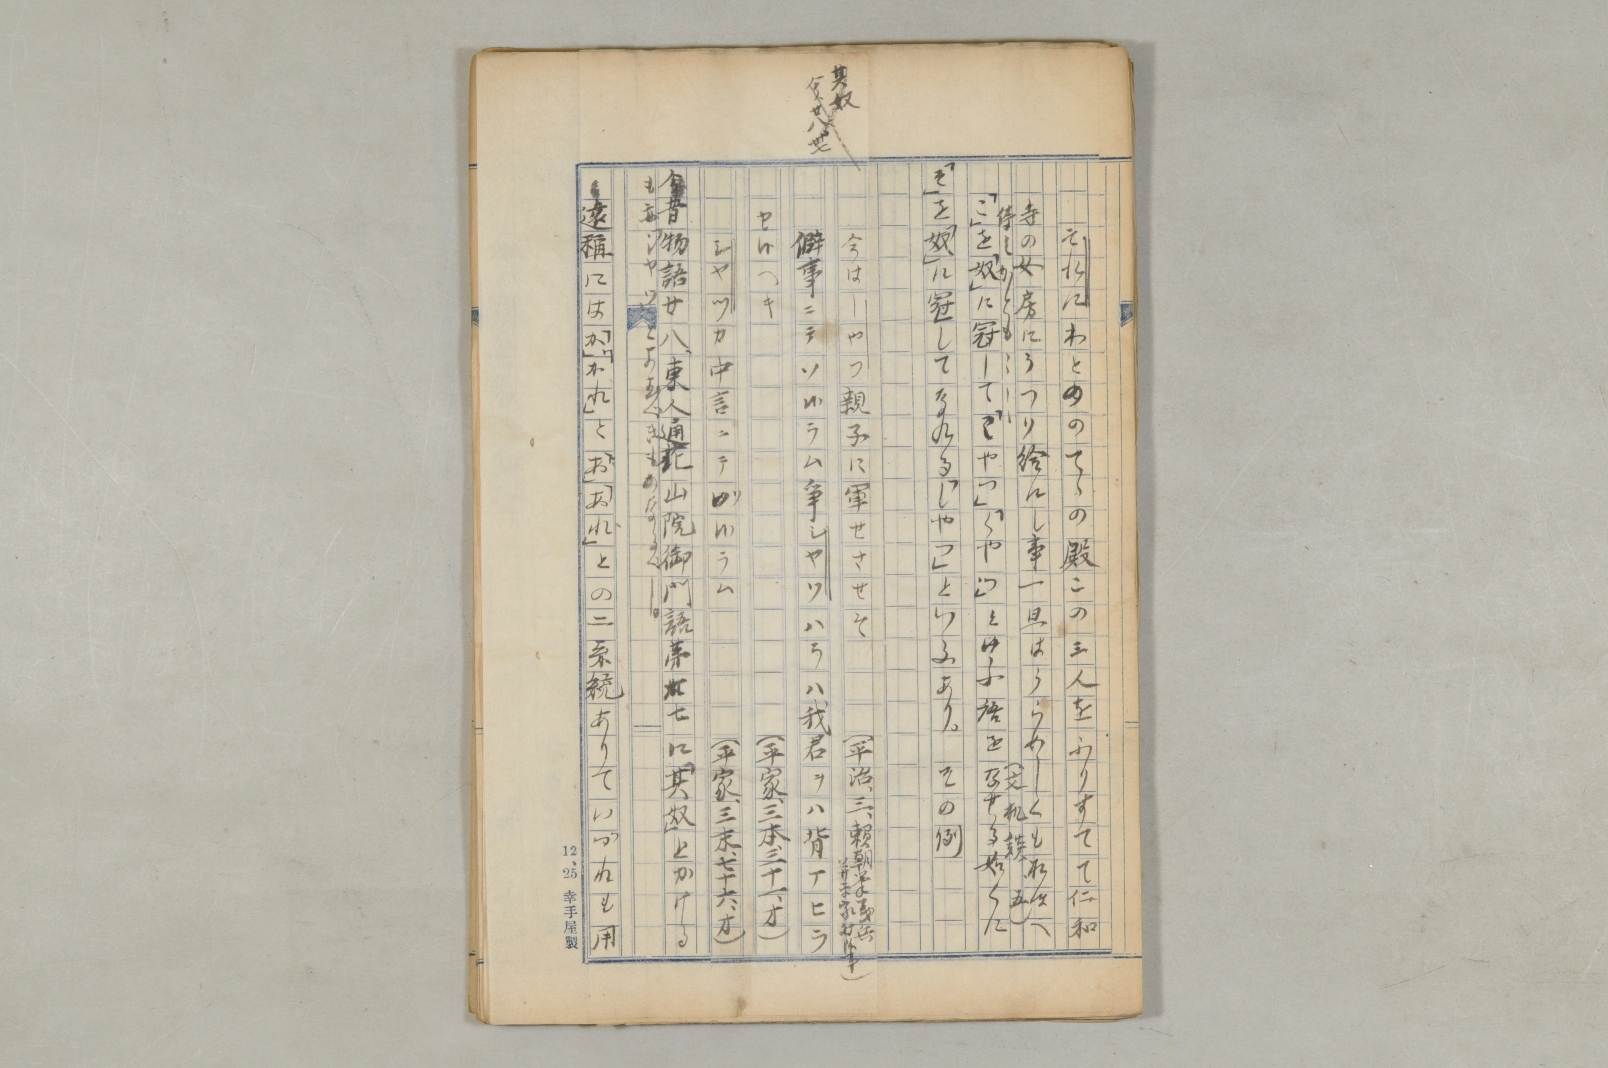 其奴
それにわとのゝてらの殿この三人をふりすてて仁和
寺の女房にうつり給にし事一旦はうらめしくも
「こ」を「奴」に冠して「こやつ」「くやつ」といふ語をなせる如くに
「そ」を「奴」に冠してなれる「しやつ」といふあり。その例
今はしやつ親子に軍せさせそ (平治、三、頼朝挙義兵
僻事ニテソ候ラム争シヤツハラハ我君ヲハ背アヒラ
セ候ヘキ (平家、三本、三十一、オ)
シヤツカ中言ニテ候ラム (平家、三末、七十六、オ)
今昔物語廿八、東人通花山院御門語第卅七に「其奴」とかける
も亦シヤツとよむべきものなるべし。
遠称には「か」「かれ」と「あ」「あれ」との二系統ありていづれも用
12、25 幸手屋製